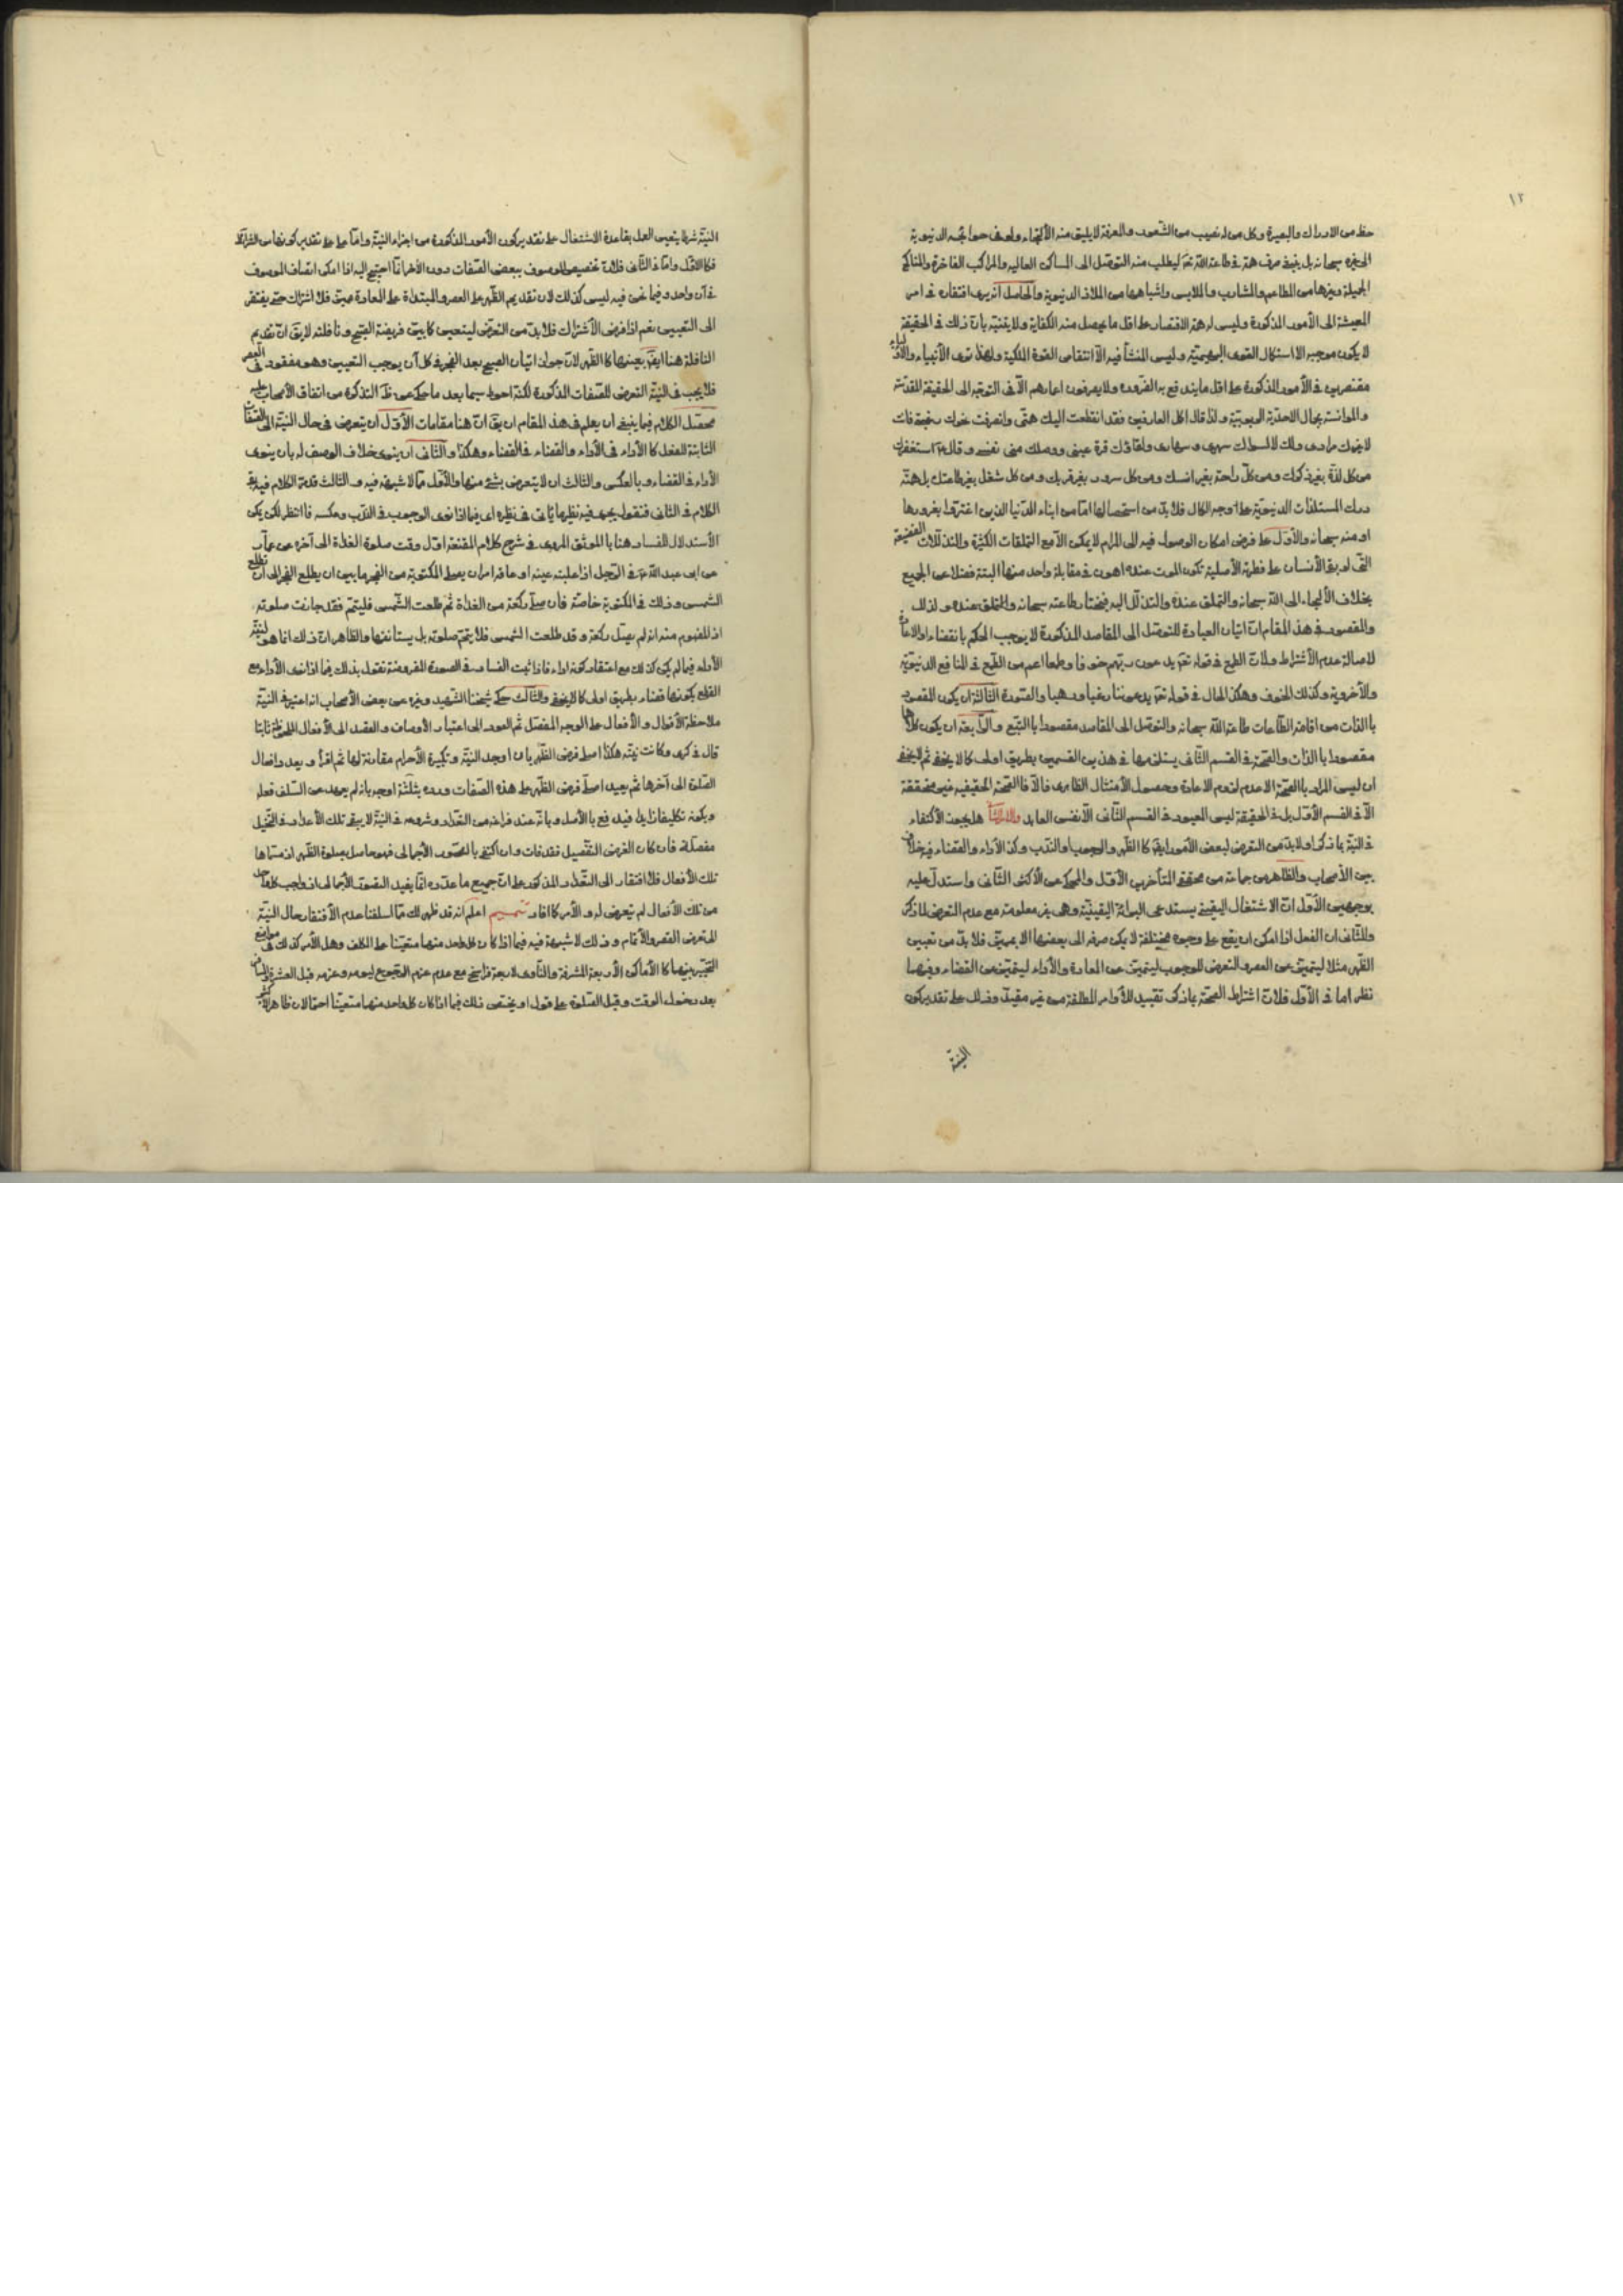 ١٢
حظ من الادراك والبصيرة وكل من له نصيب من الشعور والمعرفة لا يليق منه الألتجاء ولو في حوائجه الدنيوية
الى غيره سبحانه بل ينبغي صرف همته في طاعة الله تعالى ليطلب منه التوصل الى المساكن العاليه والمراكب الفاخرة والمناكح
الجميلة وغيرها من المطاعم والمشارب والملابس واشباهها من الملاذ الدنيوية والحاصل انه يرى افتقاره في امر
المعيشة الى الأمور المذكورة وليس له همة الاقتصار على اقل ما يحصل منه الكفاية ولا يقنيه بان ذلك في الحقيقة
لا يكون موجبه الا استكمال القوى البهيمية وليس المنشأ فيه الا انتقاص القوة الملكية ولهذا ترى الأنبياء والأولياء
مقتصرين في الأمور المذكورة على اقل ما يندفع به الضرورة ولا يصرفون اعمارهم الا في التوجه الى الحقيقة المقدسة
والموانسة بجمال الاحدية المحبوبية ولذا قال اكمل العارفين فقد انقطعت اليك همتي وانصرفت نحوك رغبتي فانت
لا غيرك مرادي ولك لا لسواك سهري وسهادي ولقاؤك قرة عيني ووصلك منى نفسي و قال استغفرك
من كل لذة بغير ذكرك ومن كل راحة بغير انسك ومن كل سرور بغير قربك ومن كل شغل بغير طاعتك بل همته
درك المستلذات الدنيوية على اوجه الكمال فلا بد من استحصالها اما من ابناء الدنيا الذين اغتروا بغرورها
او منه سبحانه والأول على فرض امكان الوصول فيه الى المرام لا يمكن الا مع التملقات الكثيرة والتذللات الفضيعة
التي لو بقى الأنسان على فطرته الأصلية تكون الموت عنده اهون في مقابلة واحد منها البتة فضلا عن الجميع
بخلاف الألتجاء الى الله سبحانه والتملق عنده والتذلل اليه فيختار طاعته سبحانه والتملق عنده لذلك
والمقصود في هذ المقام ان اتيان العبادة للتوصل الى المقاصد المذكورة لا يوجب الحكم بانقضاء
لاصالة عدم الأشتراط ولان الطمع في قوله تعالى يدعون ربهم خوفا وطمعا اعم من الطمع في المنافع الدنيوية
والأخروية وكذلك الخوف وهكذا الحال في قوله تعالى يدعوننا رغبا ورهبا والصورة الثالثة ان يكون المقصود
بالذات من اقامة الطاعات طاعة الله سبحانه والتوصل الى المقاصد مقصودا بالتبع والرابعة ان يكون كلاهما
مقصودا بالذات والصحة في القسم الثاني يستلزمها في هذين القسمين بطريق اولى كما لا يخفى ثم لا يخفى
ان ليس المراد بالصحة الا عدم لزوم الاعادة وحصول الأمتثال الظاهري والا فالصحة الحقيقيه غير متحققة
الا في القسم الأول بل في الحقيقة ليس المعبود في القسم الثاني الا نفس العابد هل يجب الأكتفاء
في النية بما ذكر او لابد من التعرض لبعض الأمور ايضا كالظهر والوجوب والندب وكذا الأداء والقضاء فيه خلاف
بين الأصحاب والظاهر من جماعة من محققي المتأخرين الأول والمحكي عن الأكثر الثاني واستدل عليه
بوجهين الأول ان الاشتغال اليقيني يستدعي البرائة اليقينية وهي غير معلومة مع عدم التعرض لما ذكر
والثاني ان الفعل اذا امكن ان يقع على وجوه مختلفة لا يمكن صرفه الى بعضها الا بمميز فلا بد من تعيين
الظهر مثلا ليتميز عن العصر والتعرض للوجوب ليتميز عن المعادة والأداء ليتميز عن القضاء وفيهما
نظر اما في الأول فلان اشتراط الصحة بما ذكر تقييد للأوامر المطلقة من غير مقيد وذلك على تقدير كون
النية
النية شرطا يتعين العمل بقاعدة الاشتغال على تقدير كون الأمور المذكورة من اجزاء النية واما على تقدير كونها من الشرائط
فكالأول واما في الثاني فلان تخصيص الموصوف ببعض الصفات دون الأخر انما احتيج اليه اذا امكن اتصاف الموصوف
في آن واحد وفيما نحن فيه ليس كذلك لان تقديم الظهر على العصر والمبتداة على المعادة مبين فلا اشتراك حتى يفتقر
الى التعيين نعم اذا فرض الأشتراك فلا بد من التعرض ليتعين كما بين فريضة الصبح و نافلته لا يق ان تقديم
النافلة هنا ايضا بعينها كالظهر لان جواز اتيان الصبح بعد الفجر في كل آن يوجب التعيين وهو مفقود في العصر
فلا يجب في النية التعرض للصفات المذكورة لكنه احوط سيما بعد ما حكي عن التذكرة من اتفاق الأصحاب عليه
محصل الكلام فيما ينبغي ان يعلم في هذ المقام ان يق ان هنا مقامات الأول ان يتعرض في حال النية الى الصفات
الثابتة للفعل كالأداء في الأداء والقضاء في القضاء وهكذا والثاني ان ينوي خلاف الوصف له بان ينوي
الأداء في القضاء وبالعكس والثالث ان لا يتعرض بشئ منها والأول مما لا شبهة فيه والثالث قد مر الكلام فيه بقي
الكلام في الثاني فنقول يجري فيه نظير ما ياتي في نظيره اى فيما اذا نوى الوجوب في الندب وعكسه فانتظر لكن يمكن
الأستدلال للفساد هنا بالموثق المروى في شرح كلام المقنعة اول وقت صلوة الغداة الى آخره عن عمار
عن ابي عبد الله ع في الرجل اذا غلبته عينه او عاقه امر ان يصلي المكتوبة من الفجر ما بين ان يطلع الفجر الى ان تطلع
الشمس وذلك في المكتوبة خاصة فان صلى ركعة من الغداة ثم طلعت الشمس فليتم فقد جازت صلوته
اذ المفهوم منه انه لو لم يصل ركعة وقد طلعت الشمس فلا يتم صلوته بل يستانفها والظاهر ان ذلك انما هو لنيته
الأداء فيما لم يكن كذلك مع اعتقاد كونه اداء فاذا ثبت الفساد في الصورة المفروضة نقول بذلك فيما اذا نوى الأداء مع
القطع بكونها قضاء بطريق اولى كما لا يخفى والثالث حكى شيخنا الشهيد وغيره عن بعض الأصحاب انه اعتبر في النية
ملاحظة الأقوال والأفعال على الوجه المفصل ثم العود الى اعتبار الأوصاف والقصد الى الأفعال الملحوظة ثانيا
قال في كرى وكانت نيته هكذا اصلي فرض الظهر بان اوجد النية وتكبيرة الأحرام مقارنة لها ثم اقرأ ويعد وافعال
الصلوة الى آخرها ثم يعيد اصلي فرض الظهر على هذه الصفات ورده بثلثة اوجه بانه لم يعهد من السلف فعله
وبكونه تكليفا زايدا فيدفع بالأصل وبانه عند فراغه من التعداد وشروعه في النية لا يبقى تلك الأعداد في التخيل
مفصلة فان كان الغرض التفصيل فقد فات وان اكتفى بالتصور الأجمالي فهو حاصل بصلوة الظهر اذ مسماها
تلك الأفعال فلا افتقار الى التعداد المذكور على ان جميع ما عددوه انما يفيد التصور الأجمالي اذ واجب كل واحد
من تلك الأفعال لم يتعرض له والأمر كما افاد تتميم اعلم انه قد ظهر لك مما اسلفنا عدم الأفتقار حال النية
الى تعرض القصر والأتمام وذلك لا شبهة فيه فيما اذا كان كل واحد منهما متعينا على المكلف وهل الأمر كذلك في مواضع
التخيير بينهما كالأماكن الأربعة المشرفة والناوي لاربعة فراسخ مع عدم عزم الرجوع ليومه وعزمه قبل العشرة
بعد دخول الوقت وقبل الصلوة على قول او يختص ذلك فيما اذا كان كل واحد منهما متعينا احتمالان ظاهر